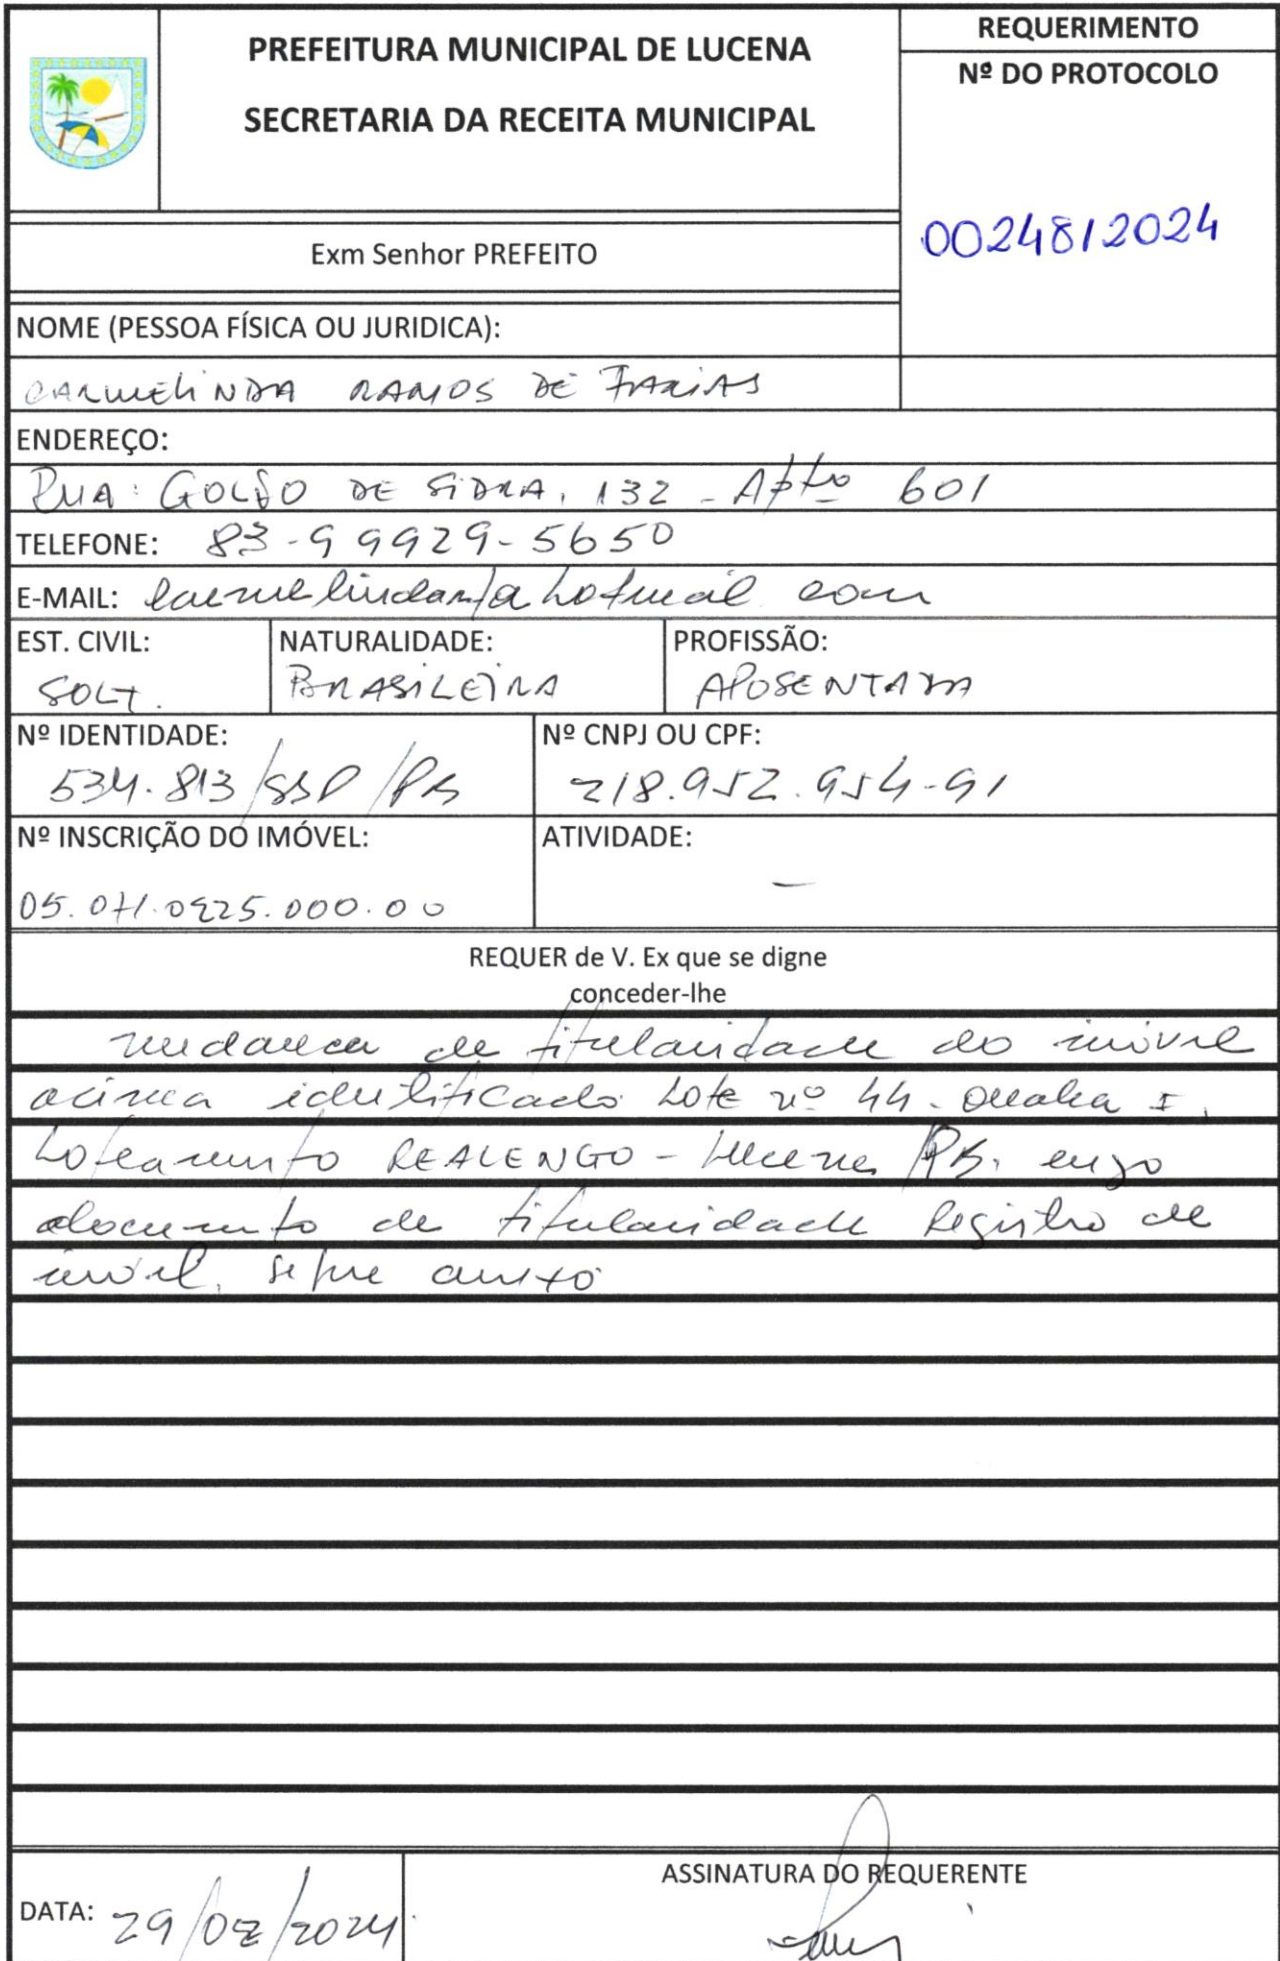 PREFEITURA MUNICIPAL DE LUCENA
SECRETARIA DA RECEITA MUNICIPAL
REQUERIMENTO
Nº DO PROTOCOLO
0024812024
Exm Senhor PREFEITO
NOME (PESSOA FÍSICA OU JURIDICA):
CARMELINDA RAMOS DE FARIAS
ENDEREÇO:
RUA: GOLFO DE SIDRA, 132 - Apto 601
TELEFONE: 83-99929-5650
E-MAIL: hotmail com
EST. CIVIL:
SOLT.
NATURALIDADE:
BRASILEIRA
PROFISSÃO:
APOSENTADA
Nº IDENTIDADE:
534.813/SSP/PB
Nº CNPJ OU CPF:
218.952.954-91
Nº INSCRIÇÃO DO IMÓVEL:
05.071.0925.000.00
ATIVIDADE:
-
REQUER de V. Ex que se digne
conceder-lhe
mudança de titularidade do imóvel
acima identificado Lote nº 44 - Quadra I,
Loteamento REALENGO - Lucena/PB, cujo
documento de titularidade Registro de
imóvel, segue anexo
DATA: 29/02/2024
ASSINATURA DO REQUERENTE